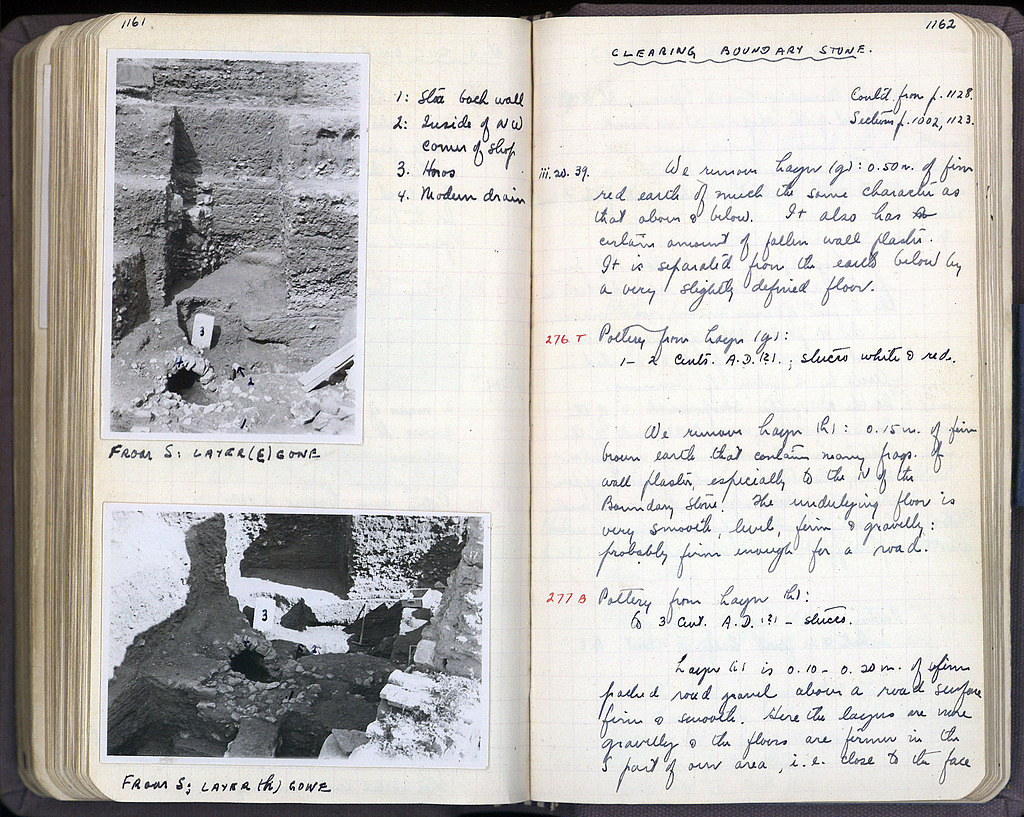 1161
1: Stoa back wall
2: Inside of NW
corner of shop
3. Horos
4. Modern drain
3
FROM S: LAYER (E) GONE
3
FROM S; LAYER (h) GONE
1162
CLEARING BOUNDARY STONE.
Cont'd. from p. 1128.
Sections p. 1002, 1123.
iii.20.39. We remove Layer (g): 0.50 m. of firm
red earth of much the same character as
that above & below. It also has
certain amount of fallen wall plaster.
It is separated from the earth below by
a very slightly defined floor.
276 T Pottery from Layer (g):
1 – 2 cents. A.D. (?).; stucco white & red.
We remove Layer (h): 0.15 m. of firm
brown earth that contains many frags. of
wall plaster, especially to the N of the
Boundary Stone. The underlying floor is
very smooth, level, firm & gravelly:
probably firm enough for a road.
277 B Pottery from Layer (h):
to 3 cent. A.D. (?) – stucco.
Layer (i) is 0.10 – 0.20 m. of firm
packed road gravel above a road surface
firm & smooth. Here the layers are more
gravelly & the floors are firmer in the
S part of our area, i.e. close to the face